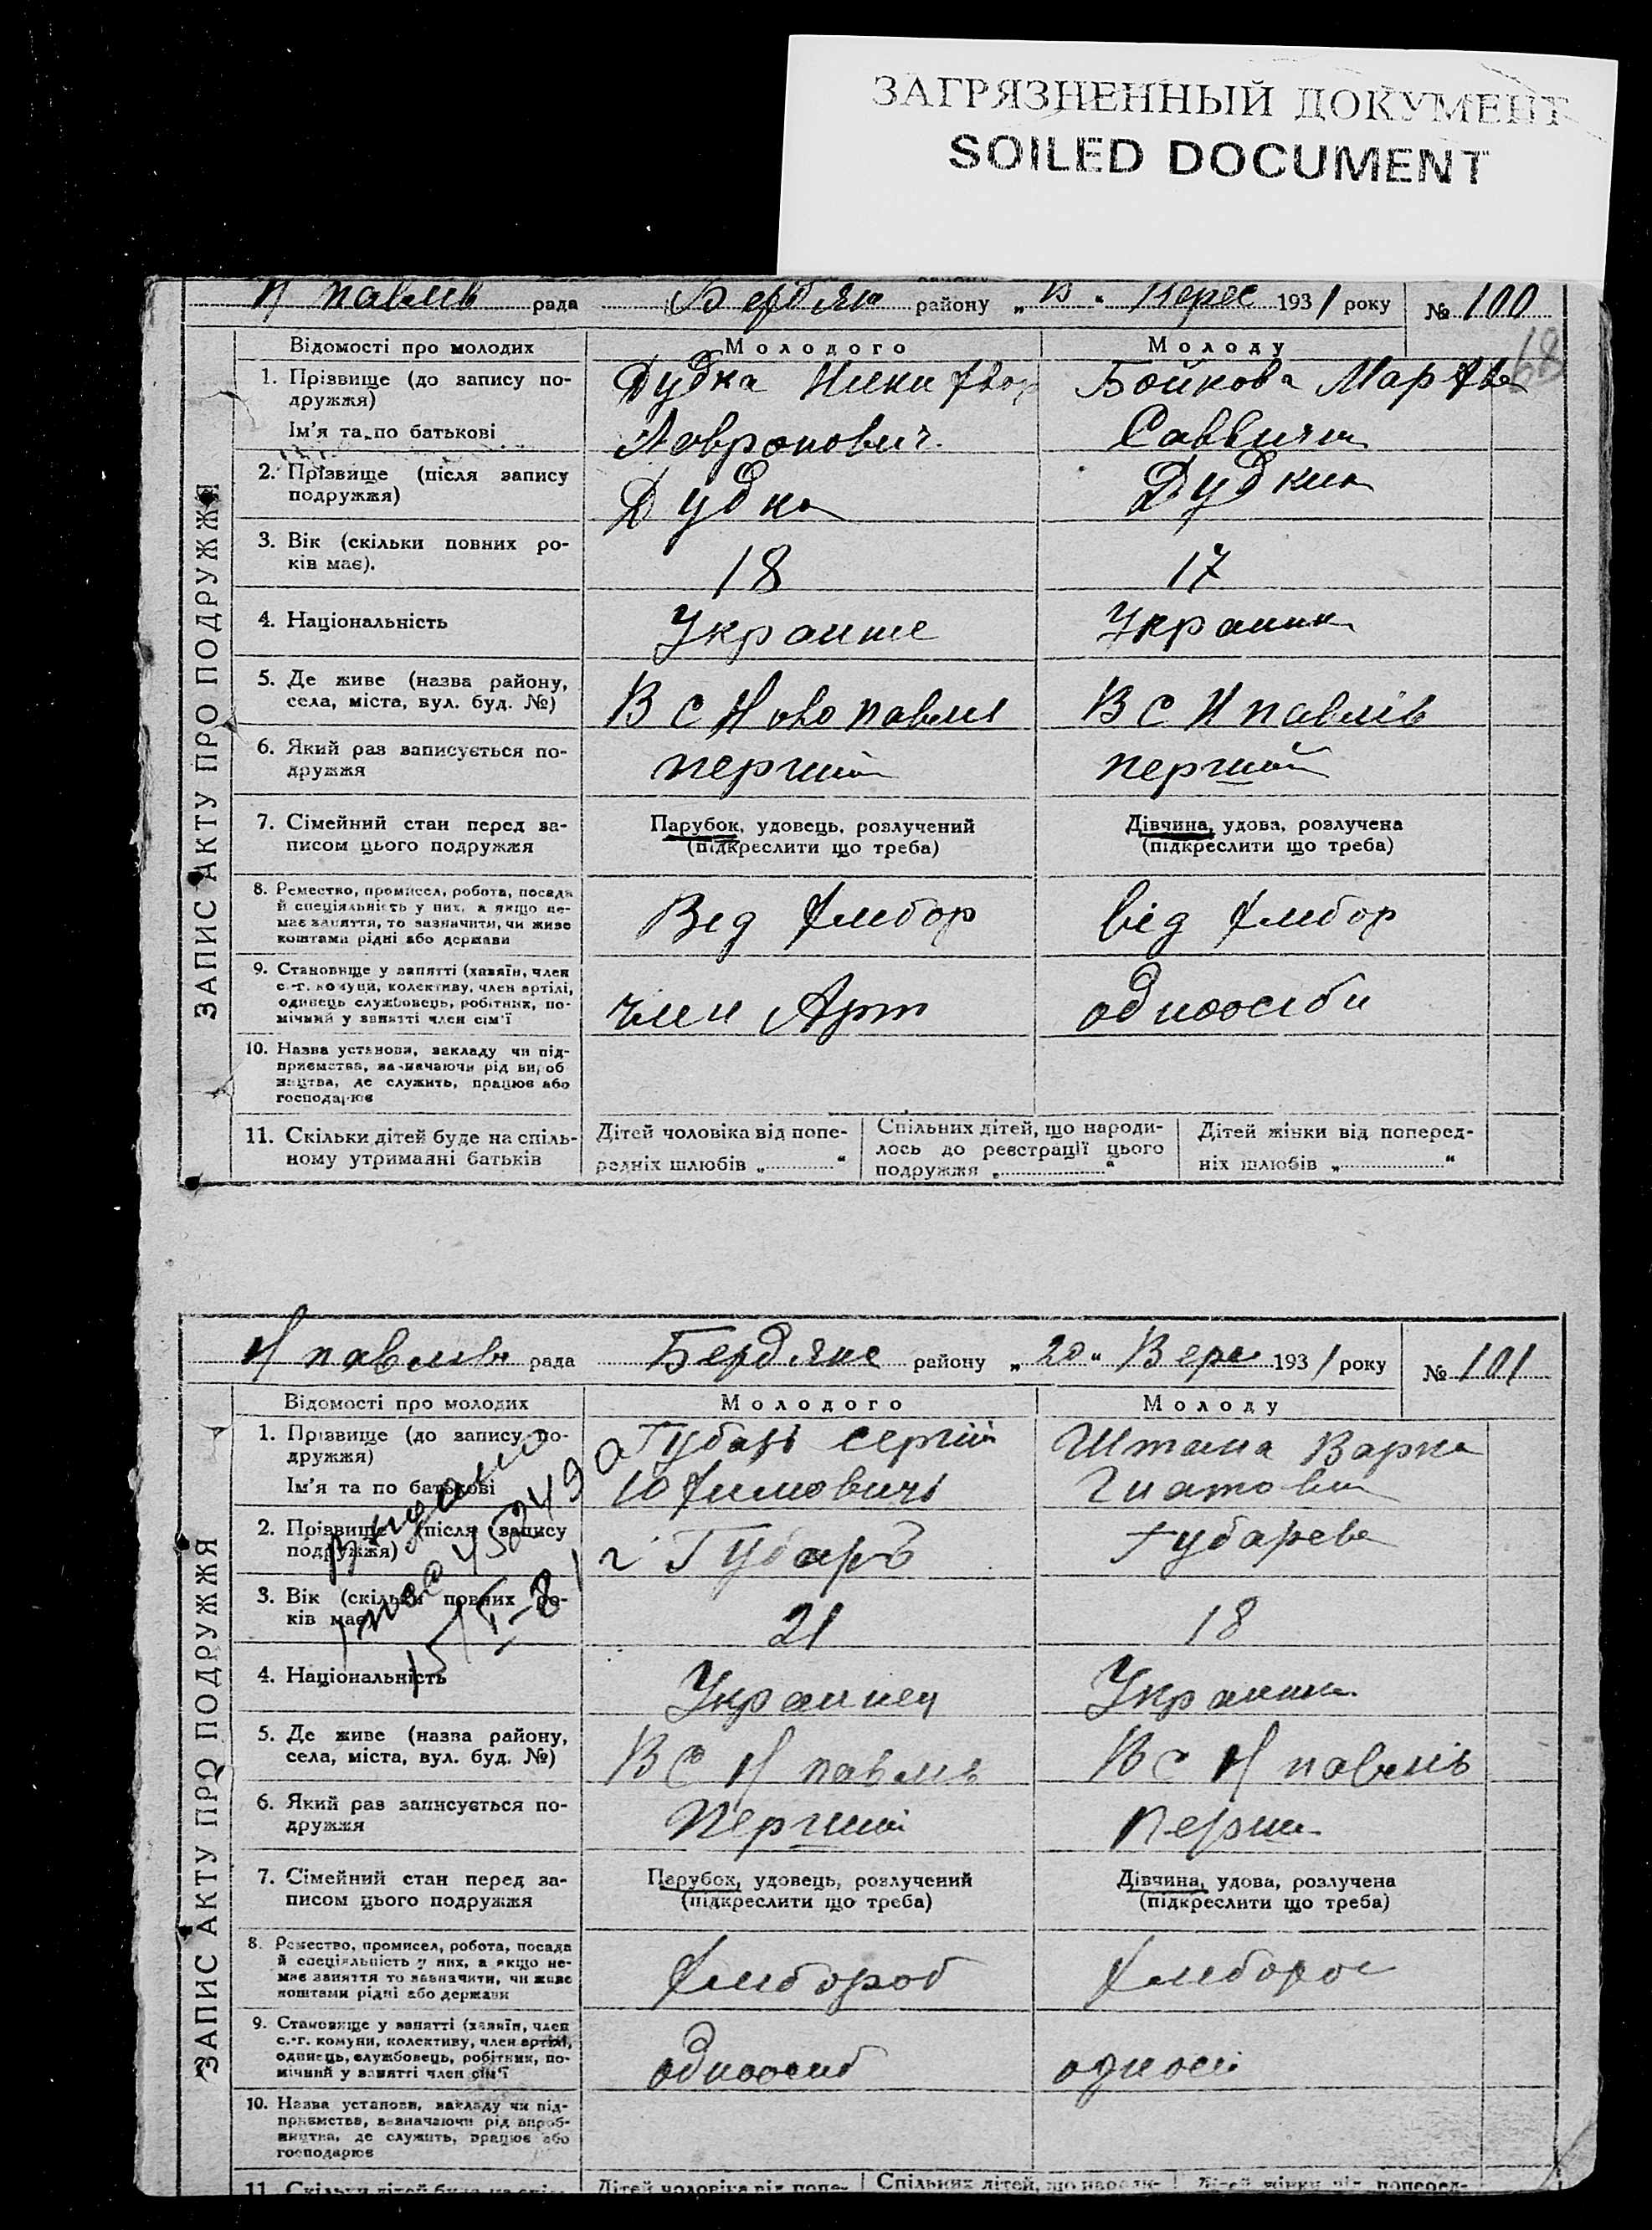 ЗАГРЯЗНЕННЫЙ ДОКУМЕНТ
SOILED DOCUMENT
Н павлів рада Бердян району „ “ Верес 1931 року № 100
68
Відомості про молодих Молодого Молоду
1. Прізвище (до запису по- Дудка Бойкова Марфа
дружжя)
Ім'я та по батькові Саввична
2. Прізвище (після запису Дудка Дудкина
подружжя)
3. Вік (скільки повних ро- 18 17
ків має).
4. Національність Украине Украинк
5. Де живе (назва району, В с Ново павлі В с Н павлів
села, міста, вул. буд. №)
6. Який раз записується по- перший перший
дружжя
7. Сімейний стан перед за- Парубок, удовець, розлучений Дівчина, удова, розлучена
писом цього подружжя (підкреслити що треба) (підкреслити що треба)
8. Ремество, промисел, робота, посада Від хлибор від хлибор
й спеціяльність у них, а якщо не-
має заняття, то зазначити, чи живе
коштами рідні або держави
9. Становище у занятті (хазяїн, член член Арт одноосіби
с.-г. комуни, колективу, член артілі,
одинець службовець, робітник, по-
мічний у занятті член сім'ї
10. Назва установи, закладу чи під-
приємства, зазначаючи рід вироб
ництва, де служить, працює або
господарює
11. Скільки дітей буде на спіль- Дітей чоловіка від попе- Спільних дітей, що народи- Дітей жінки від поперед-
ному утриманні батьків редніх шлюбів „ “ лось до реєстрації цього ніх шлюбів „ “
подружжя „ “
ЗАПИС АКТУ ПРО ПОДРУЖЖЯ
Н павлів рада Бердянс району „20“ Вере 1931 року № 101
Відомості про молодих Молодого Молоду
1. Прізвище (до запису по- Губарь Сергій Варка
дружжя)
Ім'я та по батькові Юхимович Гнатовн
2. Прізвище (після запису Губарь Губарева
подружжя)
3. Вік (скільки повних ро- 21 18
ків має)
4. Національність Украинец Украинка
5. Де живе (назва району, В с Н павлів В с Н павлів
села, міста, вул. буд. №)
6. Який раз записується по- Перший Перши
дружжя
7. Сімейний стан перед за- Парубок, удовець, розлучений Дівчина, удова, розлучена
писом цього подружжя (підкреслити що треба) (підкреслити що треба)
8. Ремество, промисел, робота, посада хлибороб хлиборо
й спеціяльність у них, а якщо не-
має заняття то зазначити, чи живе
коштами рідні або держави
9. Становище у занятті (хазяїн, член одноосиб одноосі
с.-г. комуни, колективу, член артілі,
одинець, службовець, робітник, по-
мічний у занятті член сім'ї
10. Назва установи, закладу чи під-
приємства, зазначаючи рід вироб-
ництва, де служить, працює або
господарює
11. Скільки дітей буде на спіль- Дітей чоловіка від попе- Спільних дітей, що народи- Дітей жінки від поперед-
ЗАПИС АКТУ ПРО ПОДРУЖЖЯ